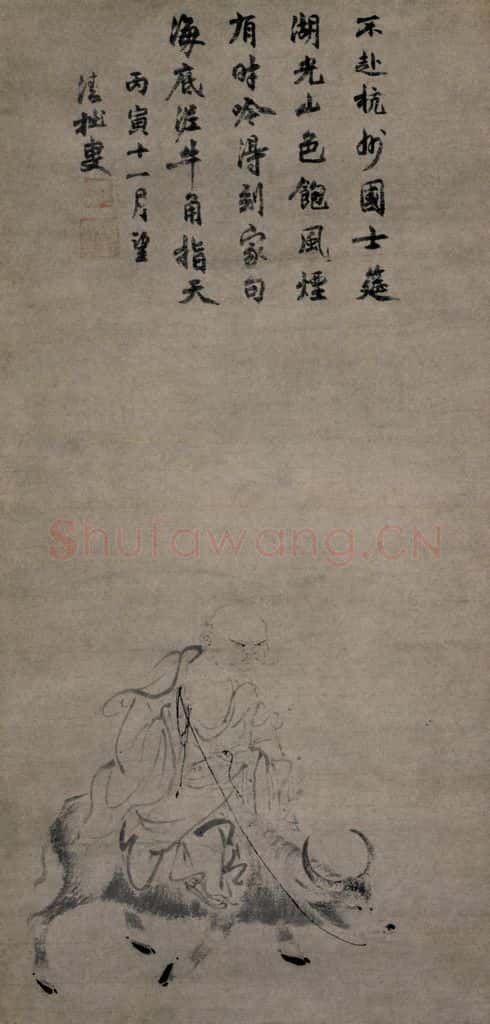 不赴杭州國士莚
湖光山色飽風煙
有時吟得到家句
海底泥牛角指天
丙寅十一月望
清拙叟
Shufawang.CN